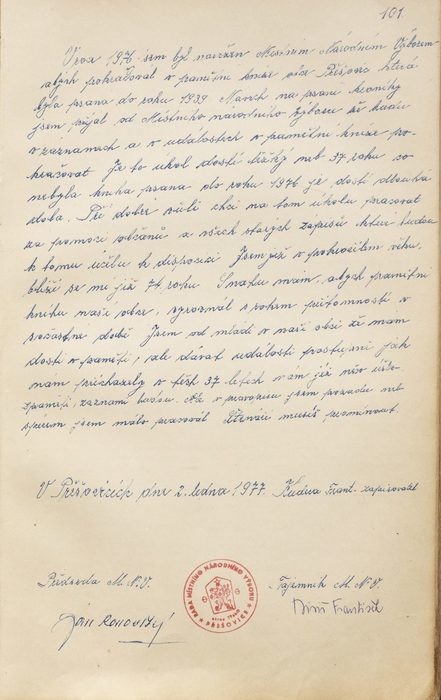 101.
V roce 1976 jsem byl navržen Místním Národním Výborem
abych pokračoval v pamětní knize obce Přišovic která
byla psaná do roku 1939 Návrh na psaní kroniky
jsem přijal od Místního národního Výboru že budu
v záznamech a v událostech v pamětní knize po-
kračovat Je to úkol dosti těžký neb 37 roků co
nebyla kniha psaná do roku 1976 je dosti dlouhá
doba. Při dobré vůli chci na tom úkolu pracovat
za pomoci občanů a všech starých zápisů které budou
k tomu účelu k disposici Jsem již v pokročilém věku,
blíží se mi již 74 roků Snahu mám, abych pamětní
knihu naší obce, srovnal s rokem přítomnosti v
součastné době Jsem od mládí v naší obci že mám
dosti v paměti, ale dávat události postupně jak
nám přicházely v těch 37 letech
zpaměti, záznamů budou. Že v pravopisu jsem pozadu neb
jsem málo pracoval Čtenáři musíš prominout.
V Příšovicích dne 2. ledna 1977. Kudrna Frant. zapisovatel
Předseda M.N.V.
Tajemník M.N.V.
RADA MÍSTNÍHO NÁRODNÍHO VÝBORU
PŘÍŠOVICE
Ján
František